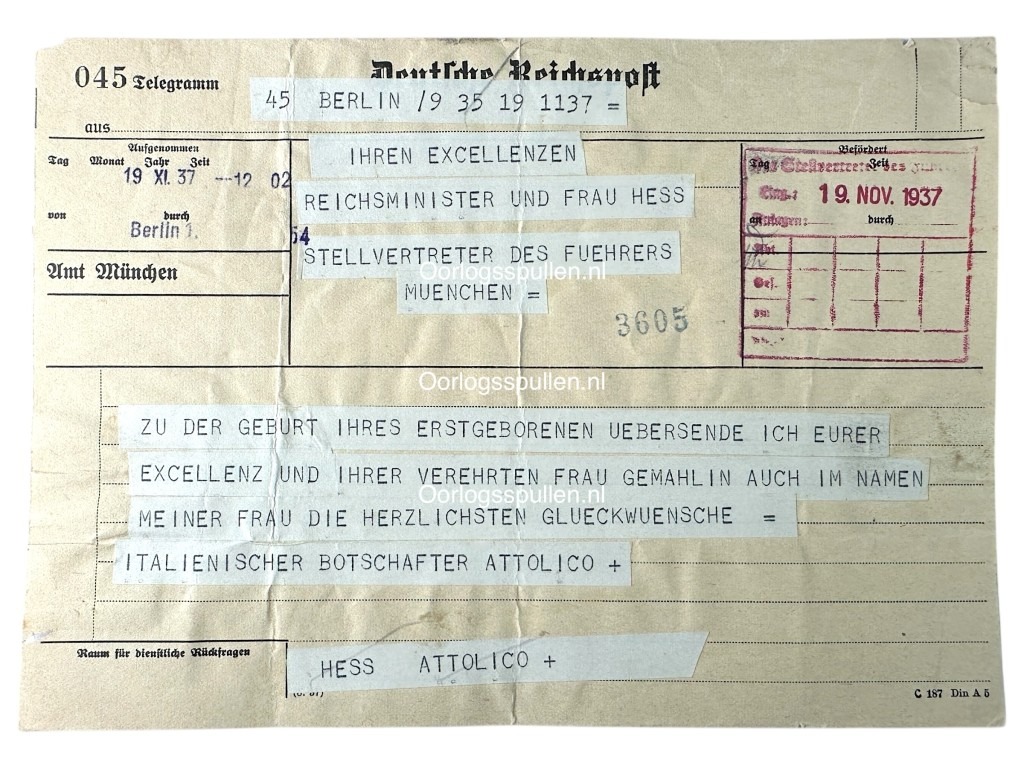 045 Telegramm
Deutsche Reichspost
45 BERLIN /9 35 19 1137 =
aus
Aufgenommen
Tag Monat Jahr Zeit
19 XI. 37 --12 02
von durch
Berlin 1.
54
Amt München
IHREN EXCELLENZEN
REICHSMINISTER UND FRAU HESS
STELLVERTRETER DES FUEHRERS
Oorlogsspullen.nl
MUENCHEN =
3605
Befördert
Tag: Zeit
Stellvertreter des
Eing.: 19. NOV. 1937
an durch
Anlagen:
Abt.
Oorlogsspullen.nl
ZU DER GEBURT IHRES ERSTGEBORENEN UEBERSENDE ICH EURER
EXCELLENZ UND IHRER VEREHRTEN FRAU GEMAHLIN AUCH IM NAMEN
Oorlogsspullen.nl
MEINER FRAU DIE HERZLICHSTEN GLUECKWUENSCHE =
ITALIENISCHER BOTSCHAFTER ATTOLICO +
Raum für dienstliche Rückfragen
HESS ATTOLICO +
C 187 Din A 5